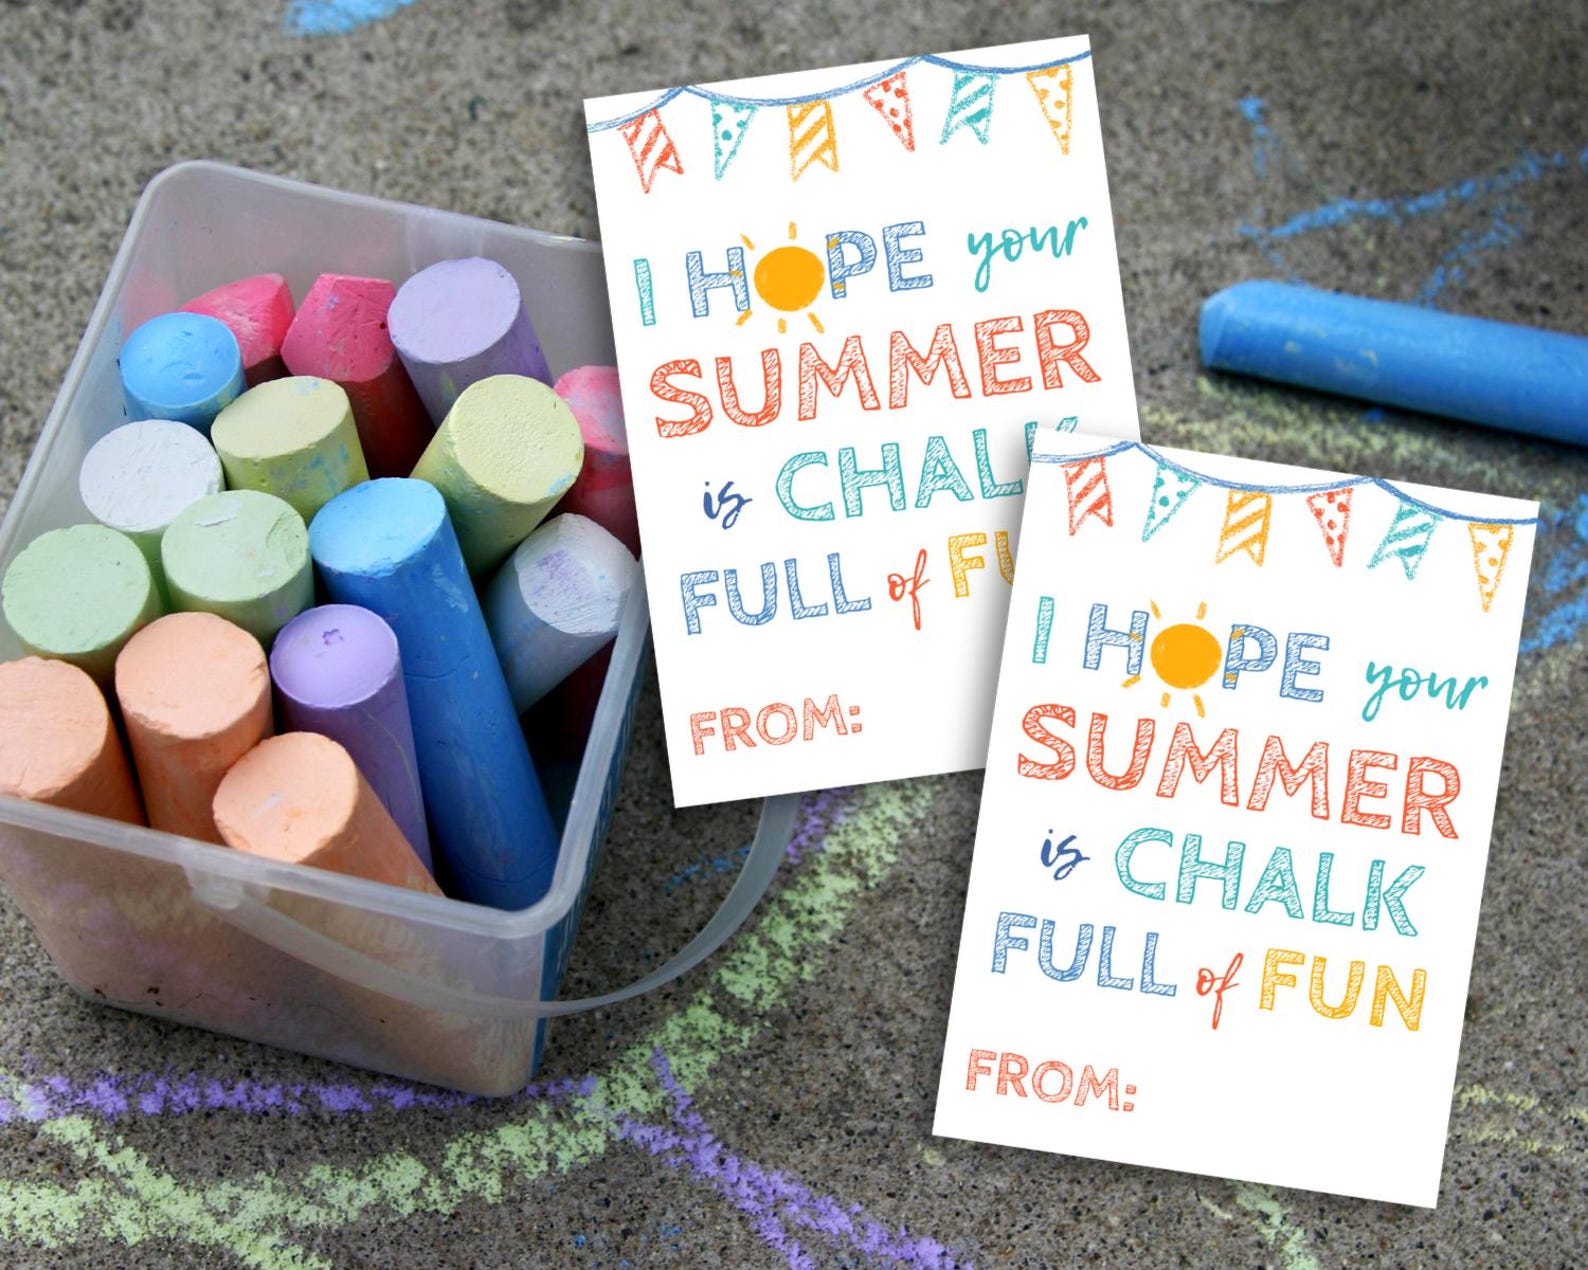 I HOPE your
SUMMER
is CHALK
FULL of FU
FROM:
I HOPE your
SUMMER
is CHALK
FULL of FUN
FROM: